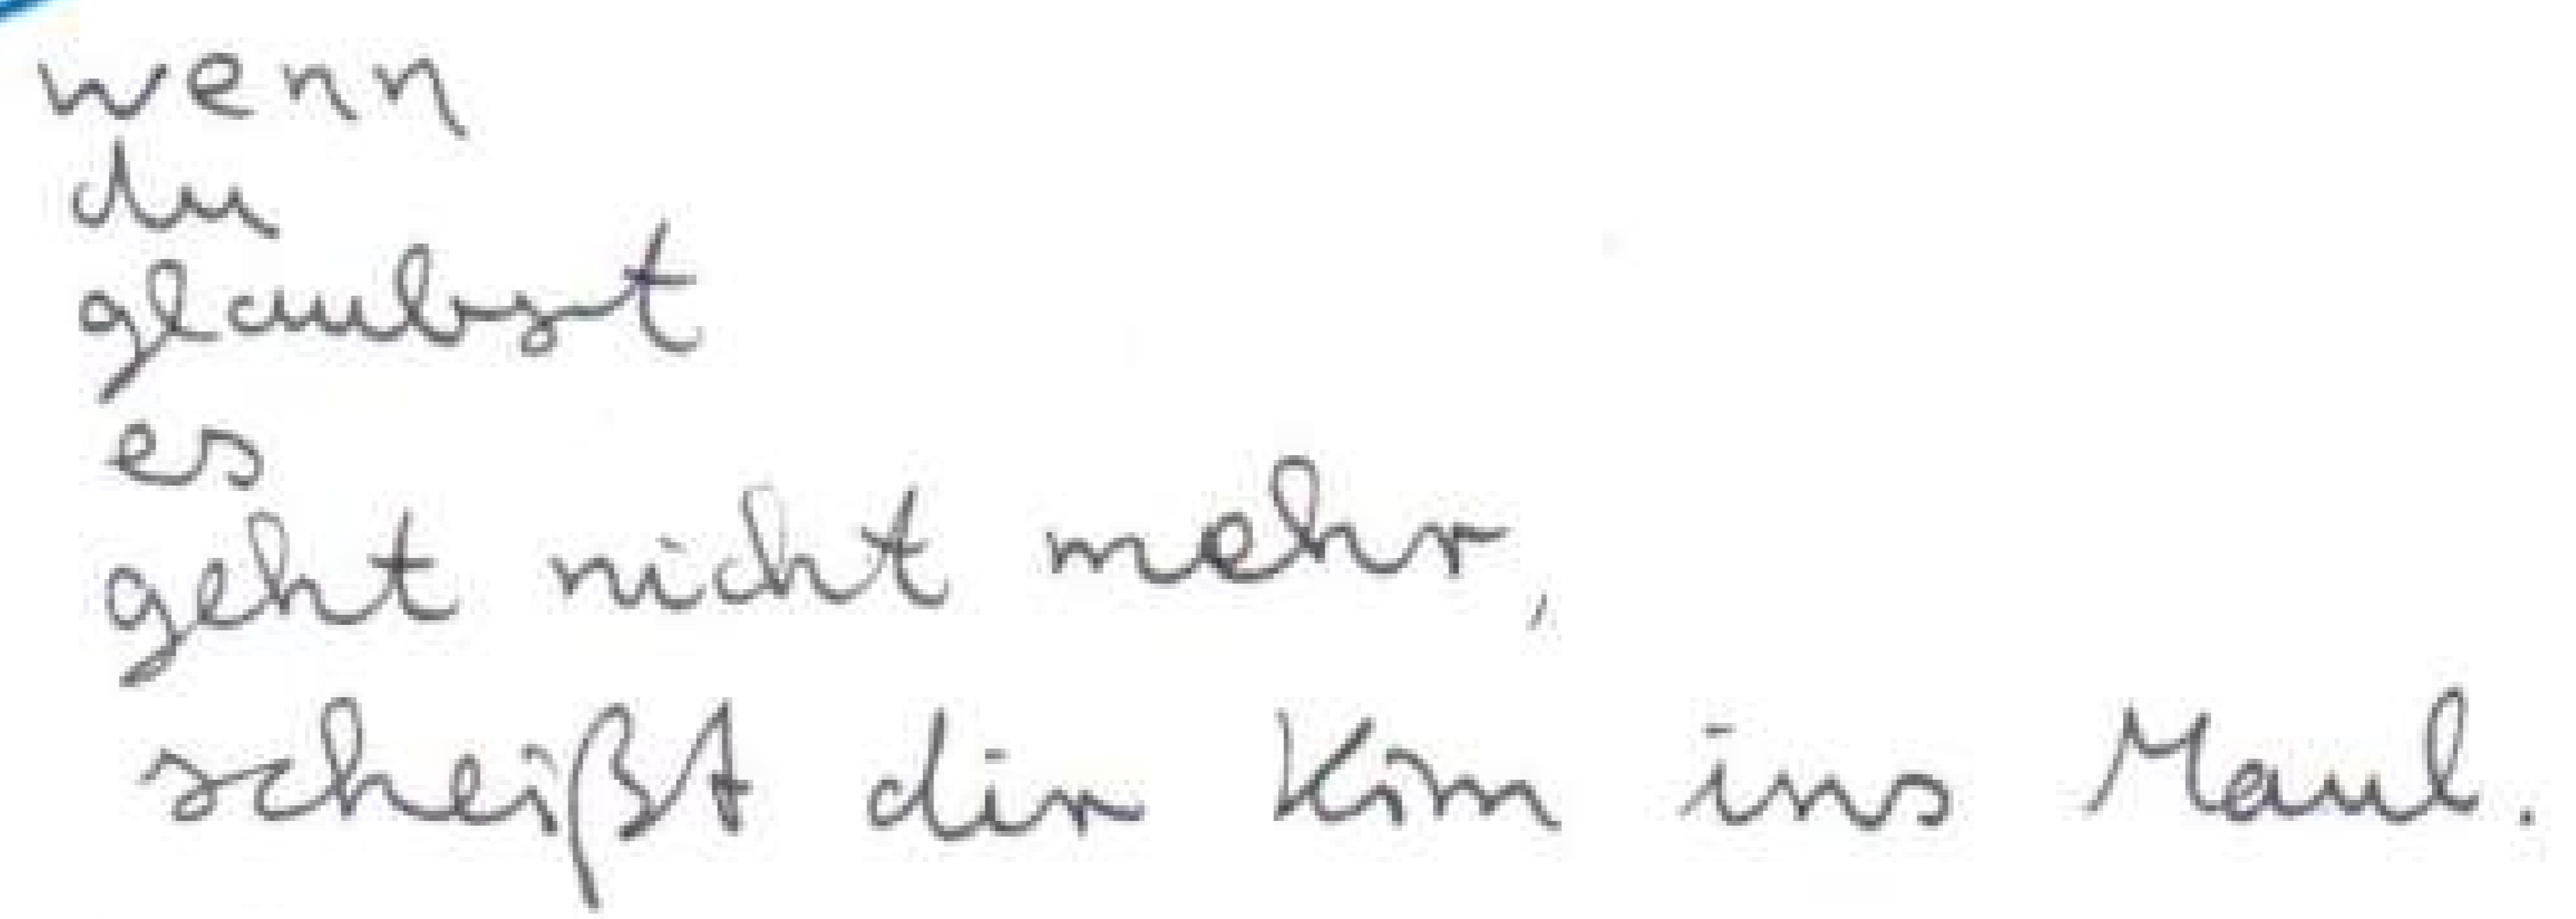 wenn
du
glaubst
es
geht nicht mehr,
scheißt dir Kim ins Maul.